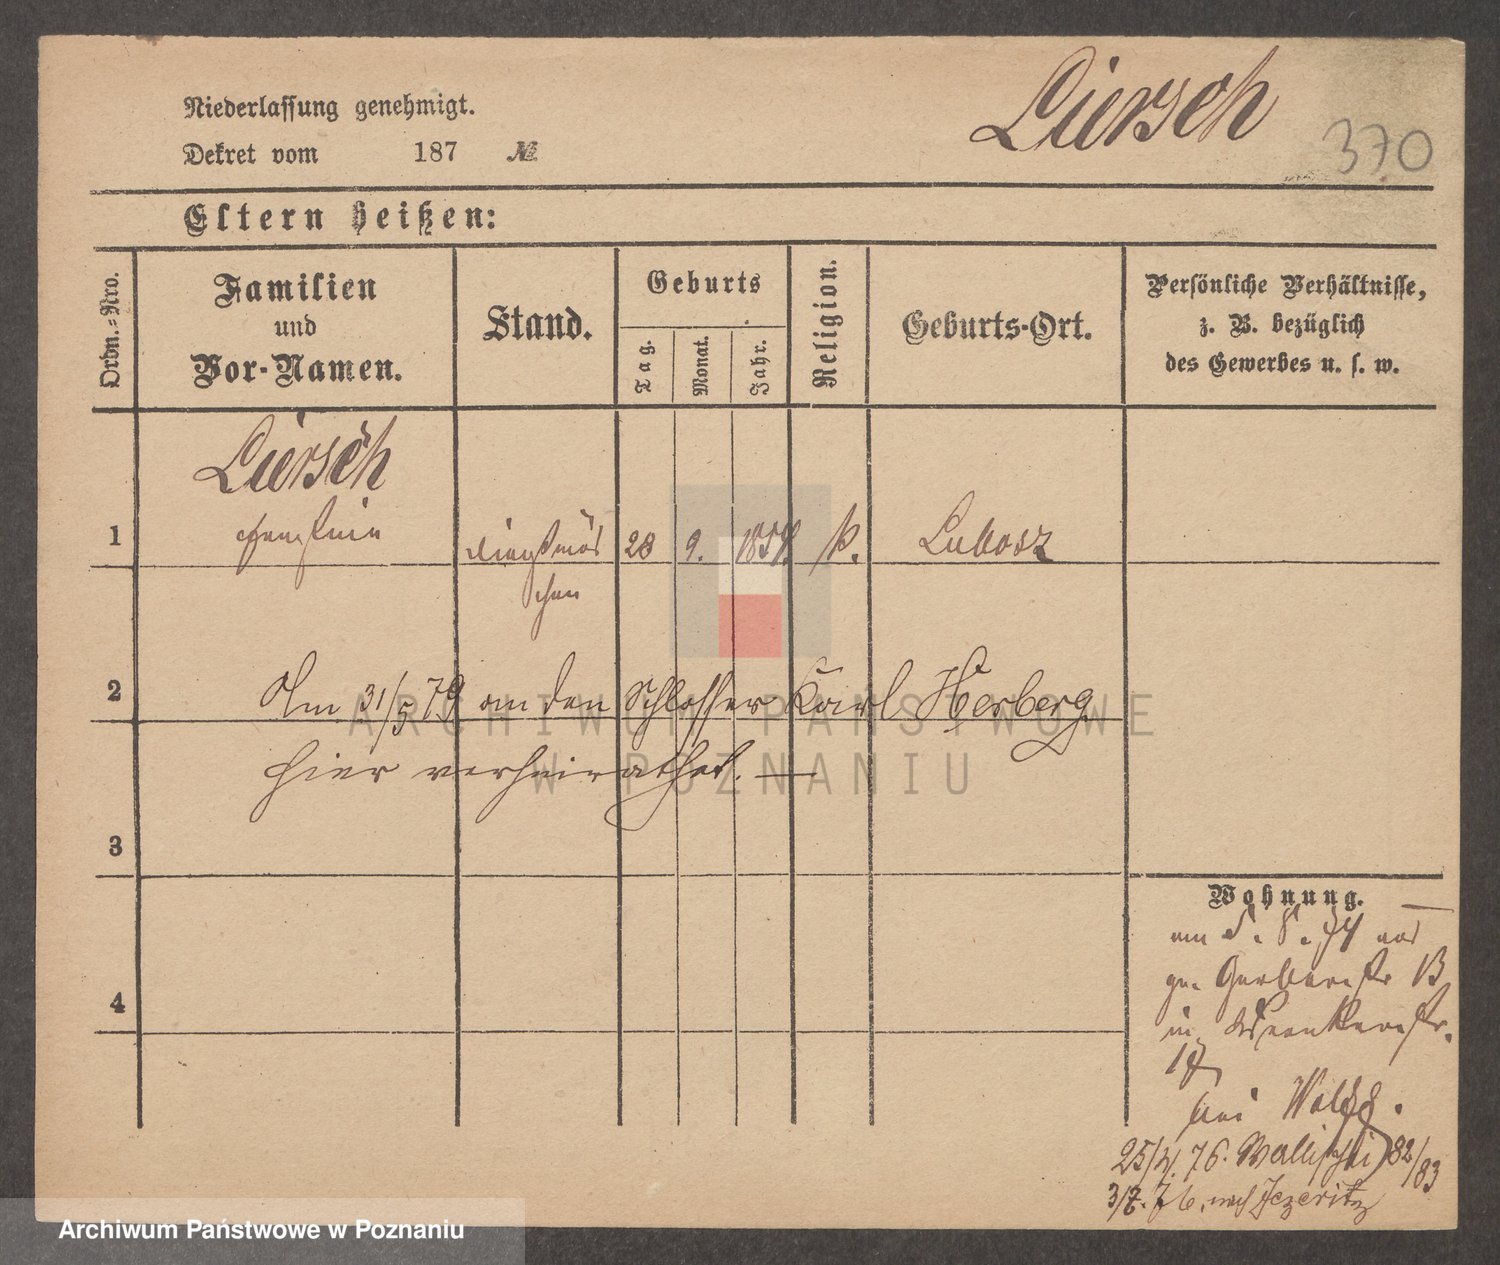 Niederlassung genehmigt.
Dekret vom 187 №
Liersch
370
Eltern heißen:
Ordn.=Nro.
Familien
und
Vor-Namen.
Stand.
Geburts
Tag.
Monat.
Jahr.
Religion.
Geburts-Ort.
Persönliche Verhältnisse,
z. B. bezüglich
des Gewerbes u. s. w.
Liersch
1 dienstmäd 28 9. k. Lubosz
chen
2 Am 31/5 79 an den Schlosser Karl Herberg
hier verheirathet. —
3
4
Wohnung.
am 5. 8. 74 aus
Gerberstr 13
in
bei
25/4. 76. Wallischei 82/83
3/7. 76. nach Jezeritz
ARCHIWUM PAŃSTWOWE
W POZNANIU
Archiwum Państwowe w Poznaniu